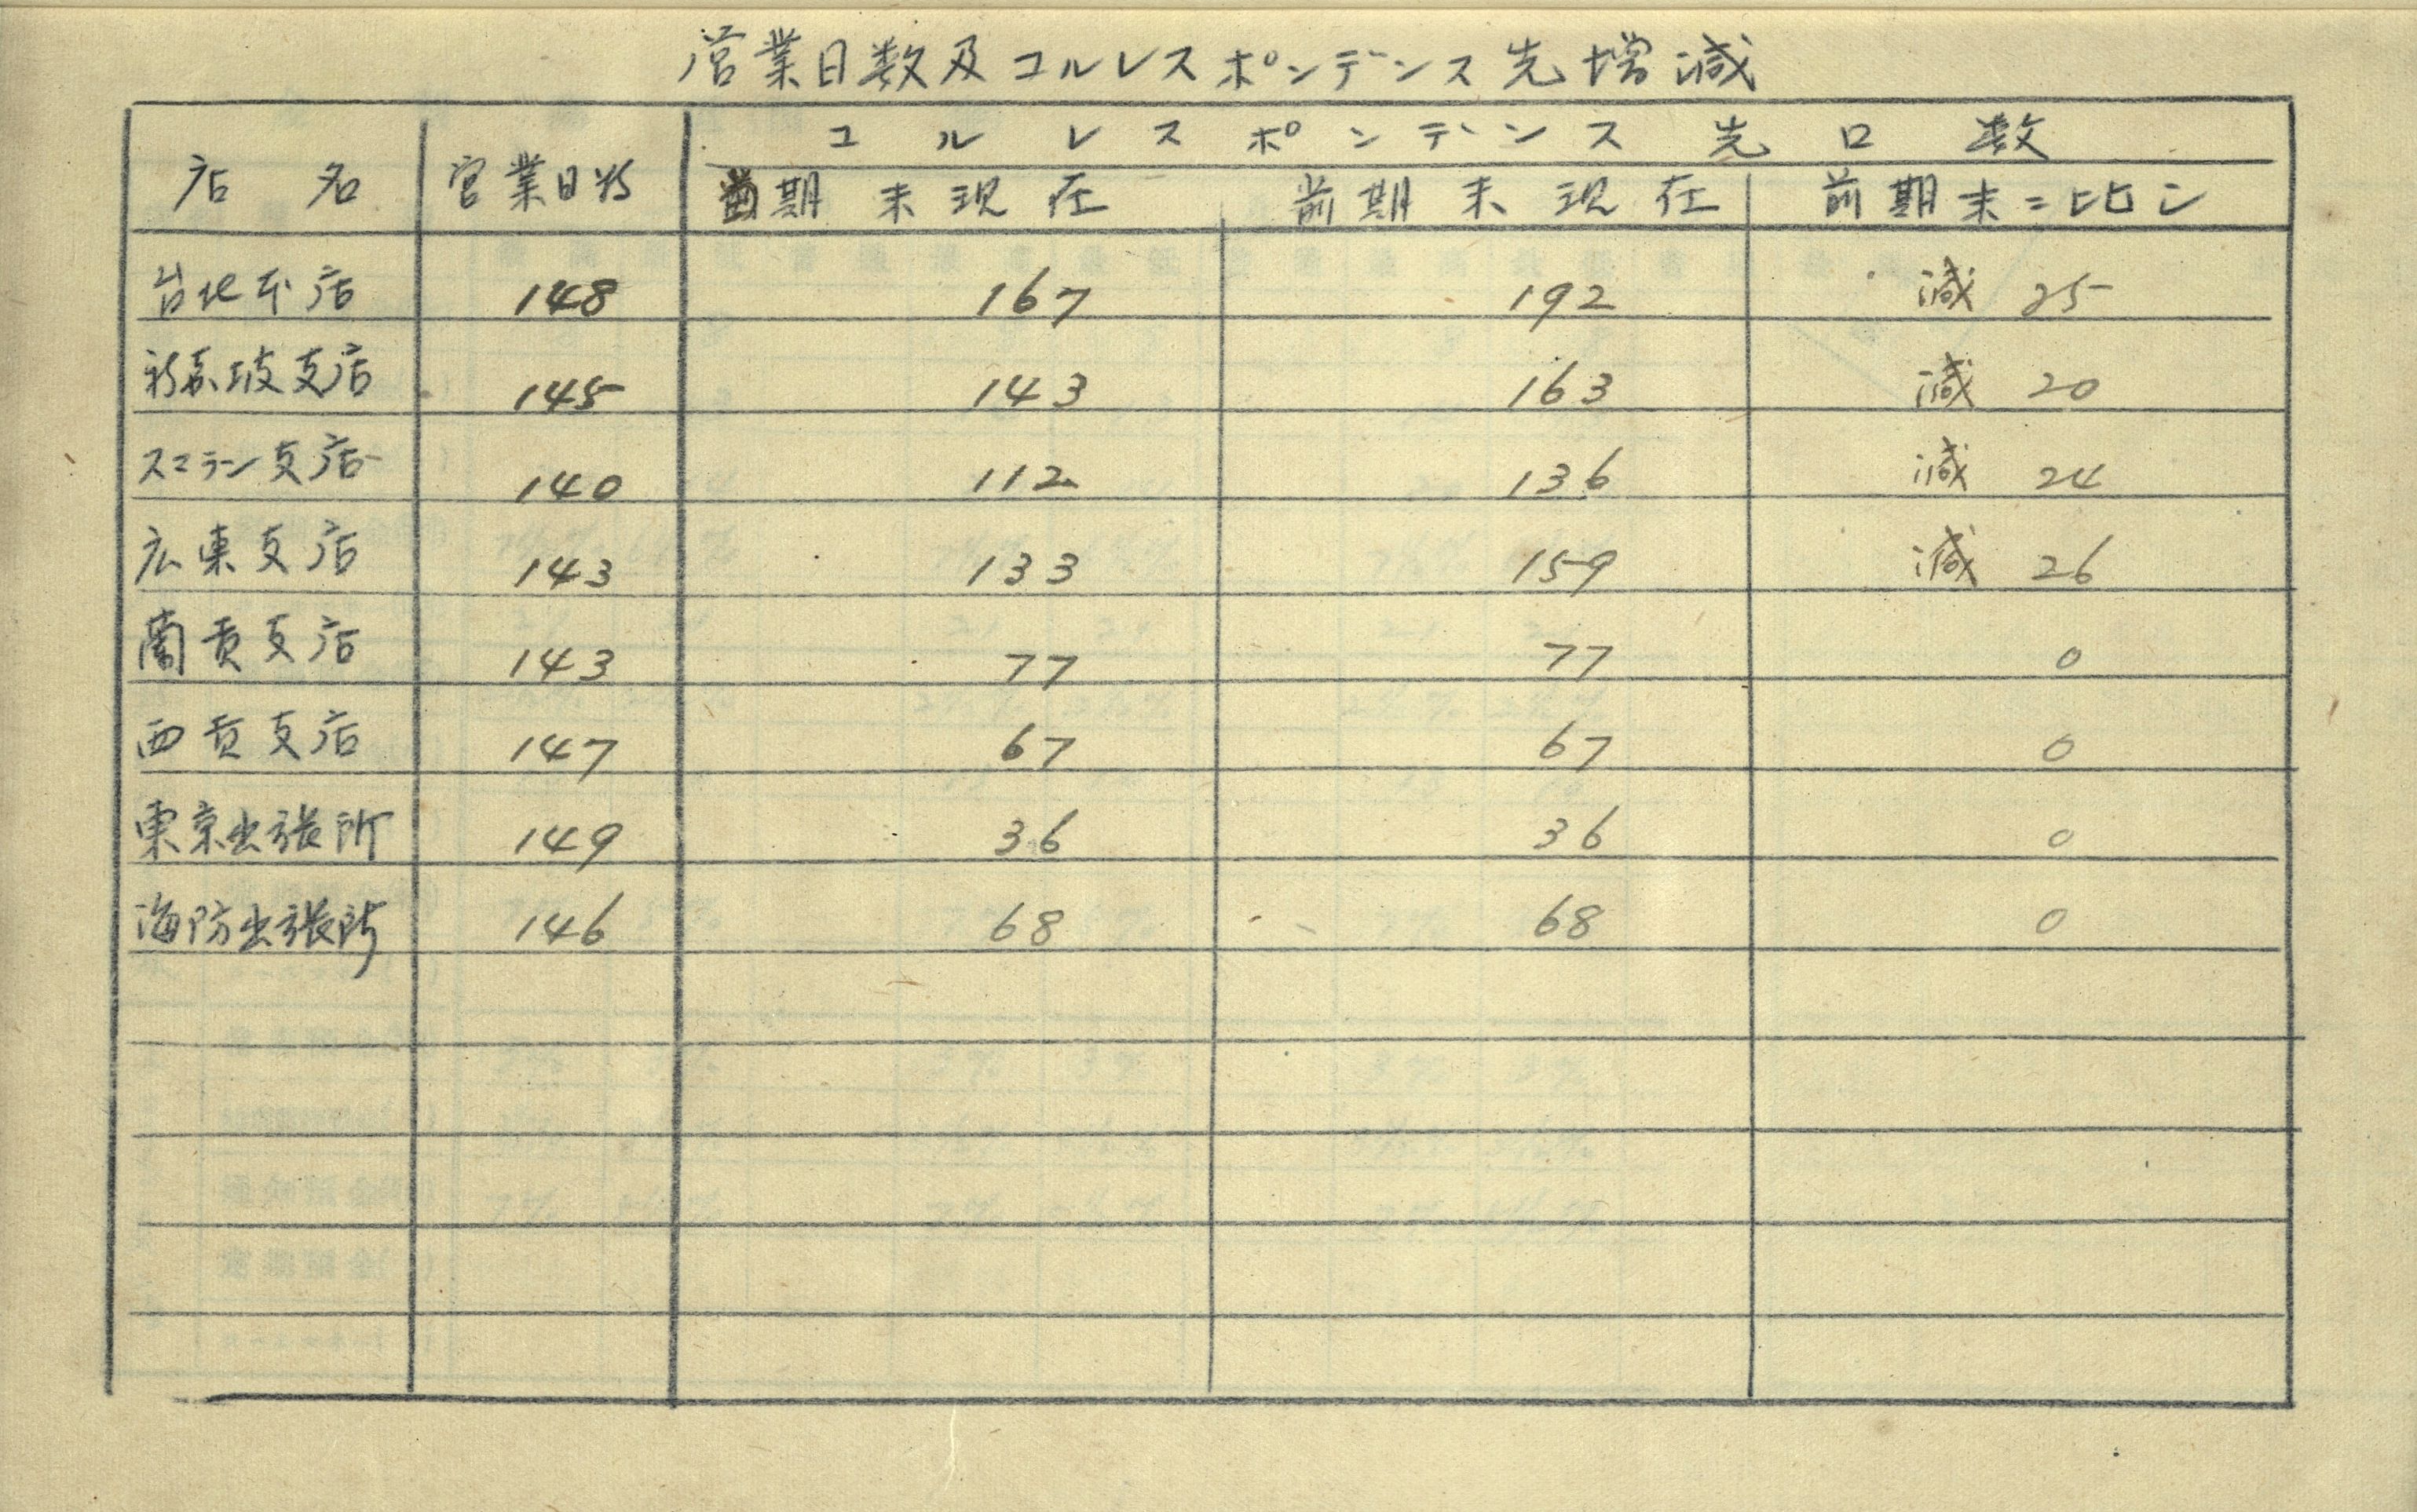 営業日数及コルレスポンデンス先増減
店名 営業日数 コルレスポンデンス先口数
当期末現在 前期末現在 前期末ニ比シ
台北本店 148 167 192 減 25
新嘉坡支店 145 143 163 減 20
スマラン支店 140 112 136 減 24
広東支店 143 133 159 減 26
蘭貢支店 143 77 77 0
西貢支店 147 67 67 0
東京出張所 149 36 36 0
海防出張所 146 68 68 0